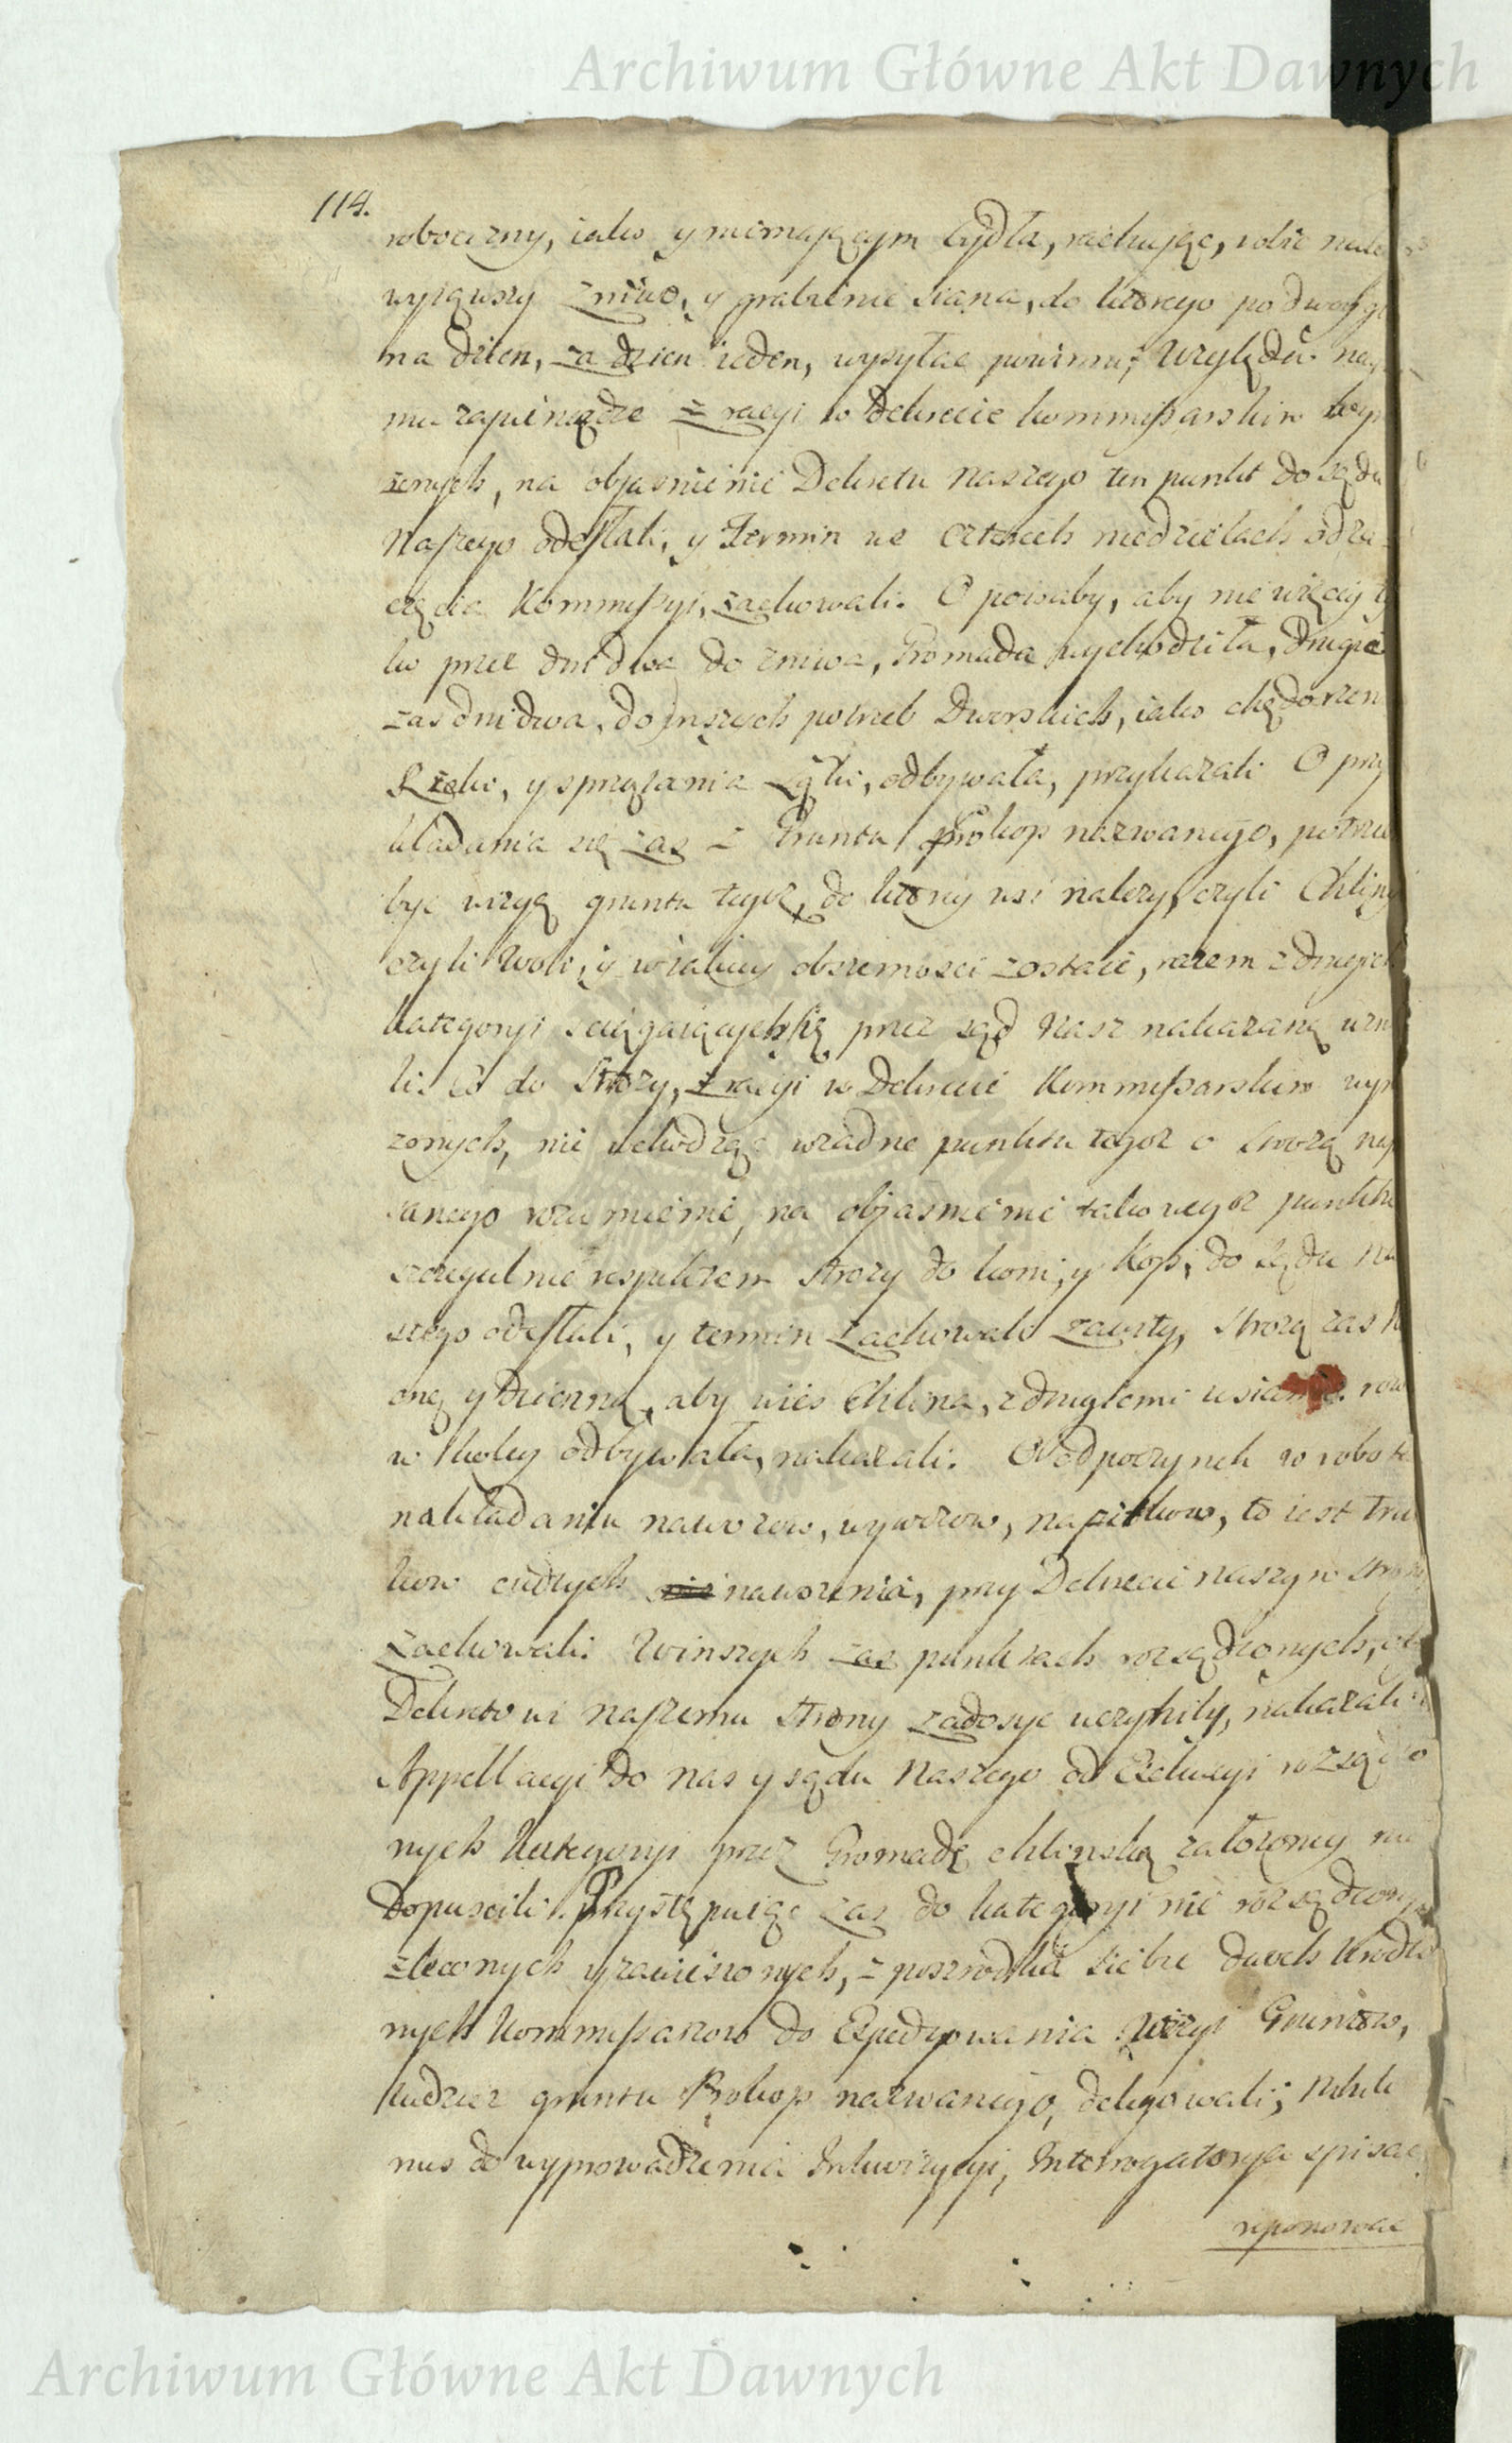 Archiwum Główne Akt Dawnych
114.
roboczny, iako y niemaiącym bydła, rachuiąc, robić
wyiąwszy Zniwo, y grabienie siana, do ktorego po dwoyg
na dzien, za dzien ieden, wysyłac powinni; Względem
mu zapieniądze z racyi w Dekrecie kommissarskim wyr
żonych, na objasnienie Dekretu Naszego ten punkt do sądu
Naszego odesłali, y Termin we czterech niedzielach od za
częcia Kommissyi, zachowali. O powaby, aby nie więcey ty
ko przez dni dwa do zniwa, Gromada wychodziła, drugie
zas dni dwa, do inszych potrzeb Dworskich, iako chędozen
Rzeki, y sprzązania Łąki, odbywała, przykazali O przy
kladania się zas z Gruntu Prokop nazwanego, potrze
byc wizyą gruntu tegoż, do ktorey wsi nalezy, czyli Chliny
czyli Woli, y wiakiey obszernosci zostaie, razem z drugich
kategoryi sciągaiącychsię przez sąd Nasz nakazaną uzn
li. Co do Strozy, z racyi w Dekrecie Kommissarskim wyr
zonych, nie wchodząc wżadne punktu tegoż o strożą
sanego rozumienie, na objasnienie takowegoż punktu
szczegulnie respektem Strozy do koni, y Kop, do sądu Na
szego odesłali, y termin zachowali zawity, Strozą zas
oną y dzienną, aby wies Chlina, z drugiemi wsiami row
w koley odbywała, nakazali. O Odpoczynek w robotę
nakładaniu nawozow, wywozow, napitkow, to iest trun
kow cudzych nawozenia, przy Dekrecie naszym strony
zachowali. Winszych zas punktach rozsądzonych,
Dekretowi naszemu strony zadosyc uczyniły, nakazali
Appellacyi do nas y sądu Naszego od Exekucyi rozsądzo
nych Kategoryi przez Gromadę chlinską założoney nie
dopuscili. Przystępuiąc zas do kategoryi nie rozsądzonych
zleconych y zawieszonych, z poszrodka siebie dwoch Urodzo
nych Kommissarzow do Expedyowania Wizyi Gruntow,
tudziez gruntu Prokop nazwanego, delegowali; Nihilo
nus do wyprowadzenia Inkwizycyi, Interrogatorya spisac,
reponowac
Archiwum Główne Akt Dawnych